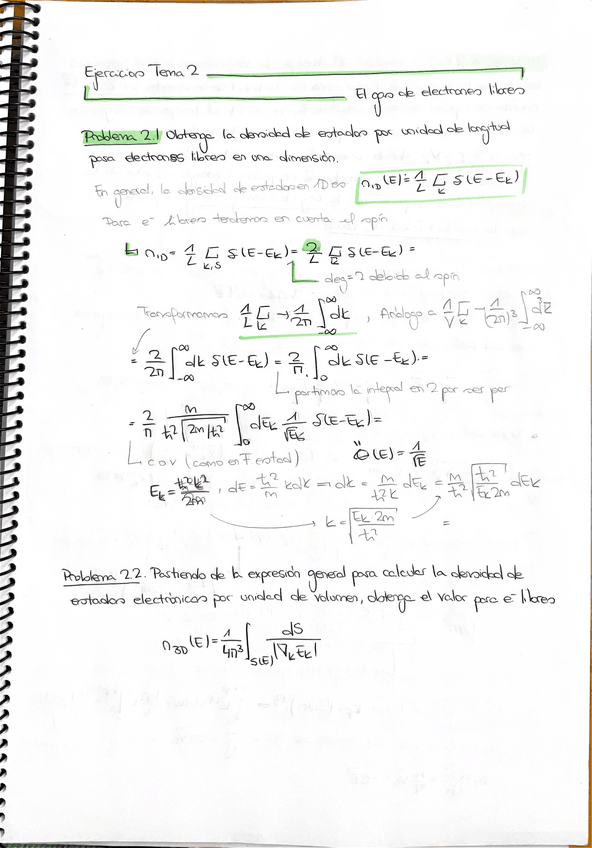 Ejercicios Tema 2
El gas de electrones libres
Problema 2.1 Obtenga la densidad de estados por unidad de longitud
para electrones libres en una dimensión.
En general, la densidad de estados en 1D es n₁D(E) = 1/L Σ_k δ(E-E_k)
Para e⁻ libres tendremos en cuenta el spin
↳ n₁D = 1/L Σ_k,s δ(E-E_k) = 2/L Σ_k δ(E-E_k) =
deg=2 debido al spin
Transformamos 1/L Σ_k → 1/2π ∫_-∞^∞ dk , Análogo a 1/V Σ_k → 1/(2π)³ ∫_-∞^∞ d³k
= 2/2π ∫_-∞^∞ dk δ(E-E_k) = 2/π ∫_0^∞ dk δ(E-E_k) =
partimos la integral en 2 por ser par
= 2/π m/ħ²√(2m/ħ²) ∫_0^∞ dE_k 1/√E_k δ(E-E_k) =
c o v (como en F estad) "δ(E) = 1/√E
E_k = ħ²k²/2m , dE = ħ²/m kdk → dk = m/ħ²k dE_k = m/ħ² √(ħ²/E_k 2m) dE_k
→ k = √(E_k 2m/ħ²) =
Problema 2.2. Partiendo de la expresión general para calcular la densidad de
estados electrónicos por unidad de volumen, obtenga el valor para e⁻ libres
n₃D(E) = 1/4π³ ∫_S(E) dS/|∇_k E_k|